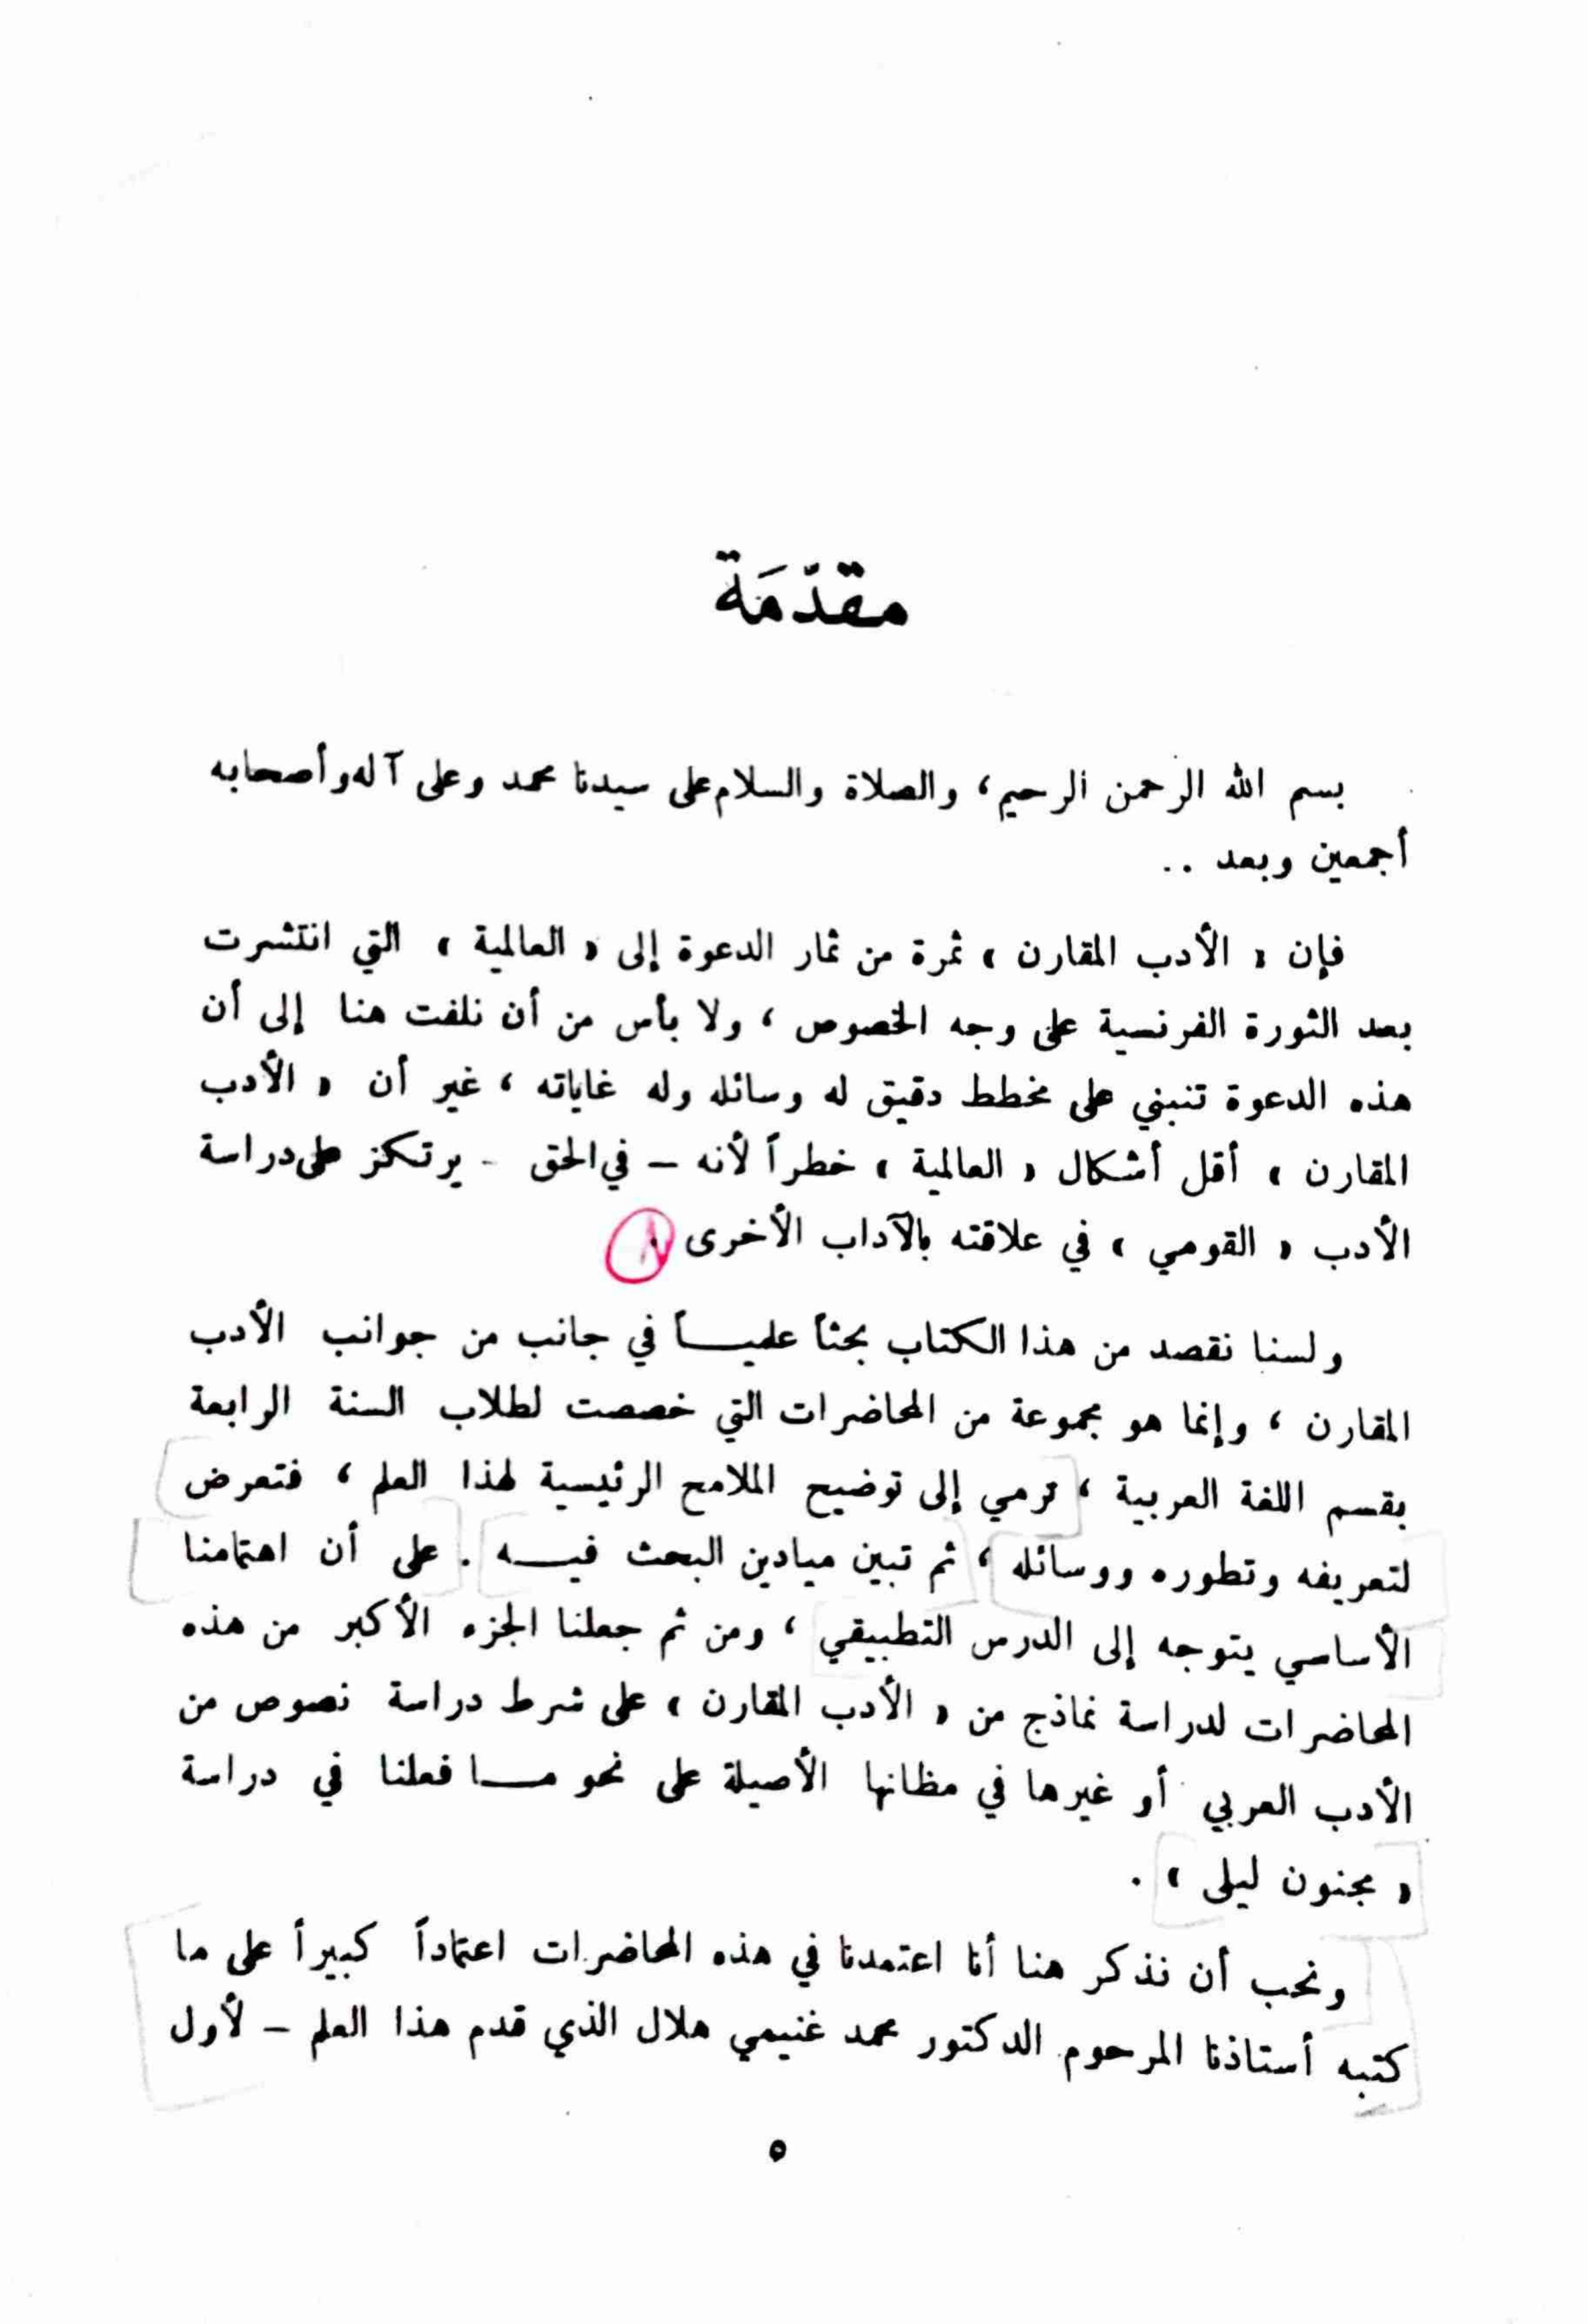 مقدّمَة
بسم الله الرحمن الرحيم، والصلاة والسلام على سيدنا محمد وعلى آله وأصحابه
أجمعين وبعد ..
فإن « الأدب المقارن » ثمرة من ثمار الدعوة إلى « العالمية » التي انتشرت
بعد الثورة الفرنسية على وجه الخصوص ، ولا بأس من أن نلفت هنا إلى أن
هذه الدعوة تنبني على مخطط دقيق له وسائله وله غاياته ، غير أن « الأدب
المقارن » أقل أشكال « العالمية » خطراً لأنه – في الحق - يرتكز على دراسة
الأدب « القومي » في علاقته بالآداب الأخرى .
ولسنا نقصد من هذا الكتاب بحثاً علميـــاً في جانب من جوانب الأدب
المقارن ، وإنما هو مجموعة من المحاضرات التي خصصت لطلاب السنة الرابعة
بقسم اللغة العربية ، ترمي إلى توضيح الملامح الرئيسية لهذا العلم ، فتعرض
لتعريفه وتطوره ووسائله ، ثم تبين ميادين البحث فيـــه . على أن اهتمامنا
الأساسي يتوجه إلى الدرس التطبيقي ، ومن ثم جعلنا الجزء الأكبر من هذه
المحاضرات لدراسة نماذج من « الأدب المقارن » على شرط دراسة نصوص من
الأدب العربي أو غيرها في مظانها الأصيلة على نحو مـــا فعلنا في دراسة
« مجنون ليلى » .
ونحب أن نذكر هنا أنا اعتمدنا في هذه المحاضرات اعتماداً كبيراً على ما
كتبه أستاذنا المرحوم الدكتور محمد غنيمي هلال الذي قدم هذا العلم – لأول
٥